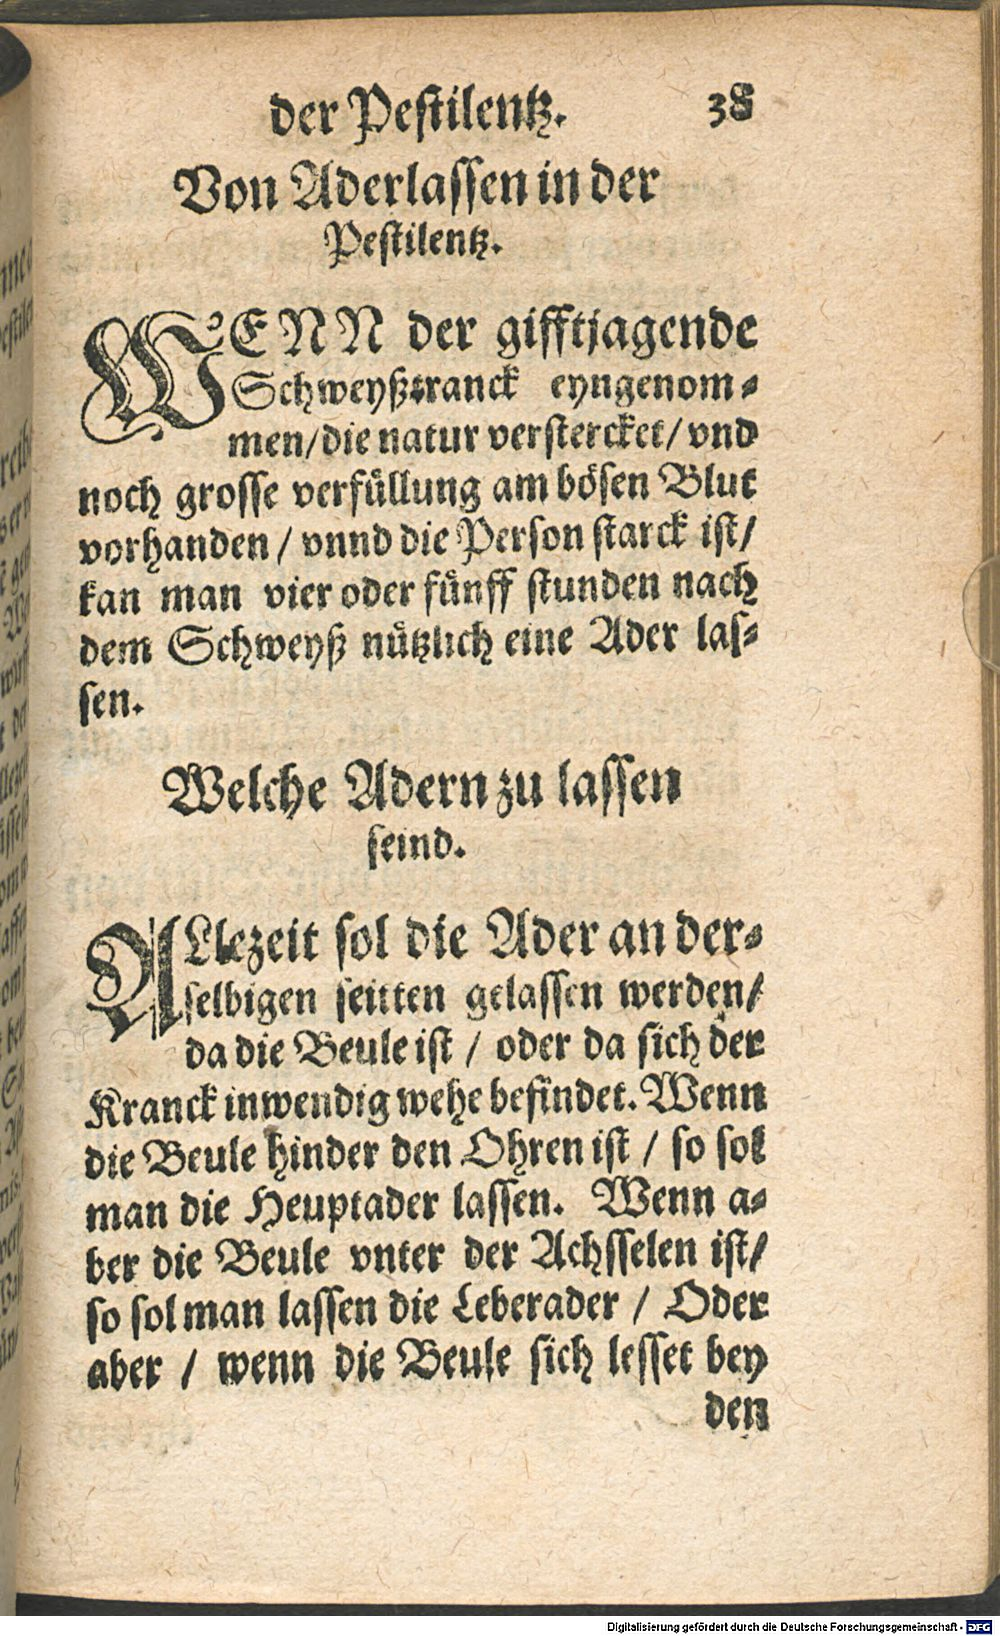 der Pestilentz. 38
Von Aderlassen in der
Pestilentz.
WENN der gifftjagende
Schweyßtranck eyngenom-
men/die natur verstercket/ vnd
noch grosse verfüllung am bösen Blut
vorhanden / vnnd die Person starck ist/
kan man vier oder fünff stunden nach
dem Schweyß nützlich eine Ader las-
sen.
Welche Adern zu lassen
seind.
ALlezeit sol die Ader an der-
selbigen seitten gelassen werden/
da die Beule ist / oder da sich der
Kranck inwendig wehe befindet. Wenn
die Beule hinder den Ohren ist / so sol
man die Heuptader lassen. Wenn a-
ber die Beule vnter der Achsselen ist/
so sol man lassen die Leberader / Oder
aber / wenn die Beule sich lesset bey
den
Digitalisierung gefördert durch die Deutsche Forschungsgemeinschaft - DFG